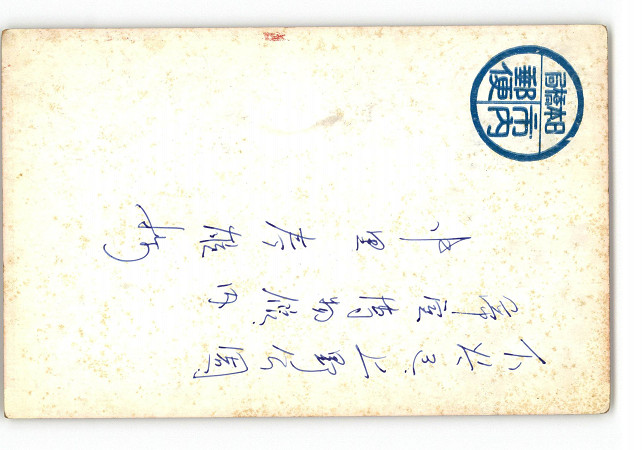 日本橋局
市内郵便
下谷区上野公園
帝室博物館内
中里 雄